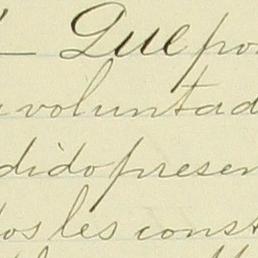 Que por
voluntad
dido presen
os les const